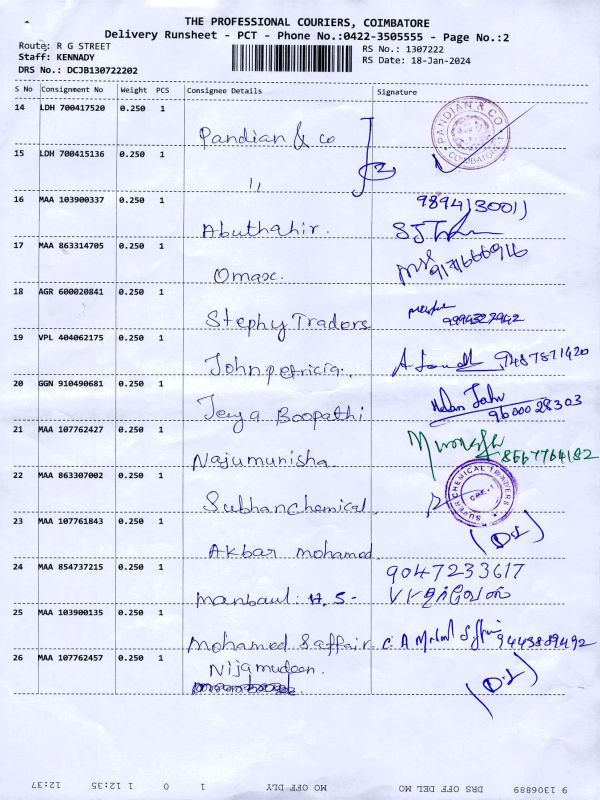 THE PROFESSIONAL COURIERS, COIMBATORE
Delivery Runsheet - PCT - Phone No.:0422-3505555 - Page No.:2
Route: R G STREET
RS No.: 1307222
Staff: KENNADY
RS Date: 18-Jan-2024
DRS No.: DCJB130722202
S No Consignment No Weight PCS Consignee Details Signature
14 LDH 700417520 0.250 1 Pandian & co
PANDIAN & CO
COIMBATORE
15 LDH 700415136 0.250 1 ,,
2
16 MAA 103900337 0.250 1 Abuthahir. 9894130011
17 MAA 863314705 0.250 1 Omax.
18 AGR 600020841 0.250 1 Stephy Traders 9994327942
19 VPL 404062175 0.250 1 Johnpetricia. 9487871420
20 GGN 910490681 0.250 1 Jeya Boopathi 9600028303
21 MAA 107762427 0.250 1 Najumunisha 8667764182
22 MAA 863307002 0.250 1 Subhanchemical.
SUPER CHEMICAL TRADERS
CBE-1
23 MAA 107761843 0.250 1 Akbar mohamed.
24 MAA 854737215 0.250 1 manbaul. H.S- 9047233617
25 MAA 103900135 0.250 1 Mohamed Saffair. 9443889492
26 MAA 107762457 0.250 1 Nijamudeen.
9 1306889 DRS OFF DEL MO MO OFF DLY 1 0 1 12:35 12:37